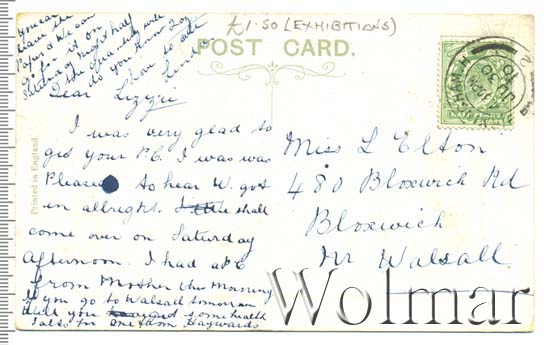 £1-50 (EXHIBITIONS)
POST CARD.
you can
have the
Papers & we can
go for it on
Saturday night half
the quantity will
do you know
love to all
Dear Lizzie
I was very glad to
get your P.C. I was was
Pleased to hear W. got
in allright. shall
come over on Saturday
afternoon. I had a P.C
from Mother this Morning
If you go to Walsall tomorrow
Will you some health
salts for one from Haywards
Miss L Elton
480 Bloxwich Rd
Bloxwich
Nr Walsall.
Printed in England.
Wolmar